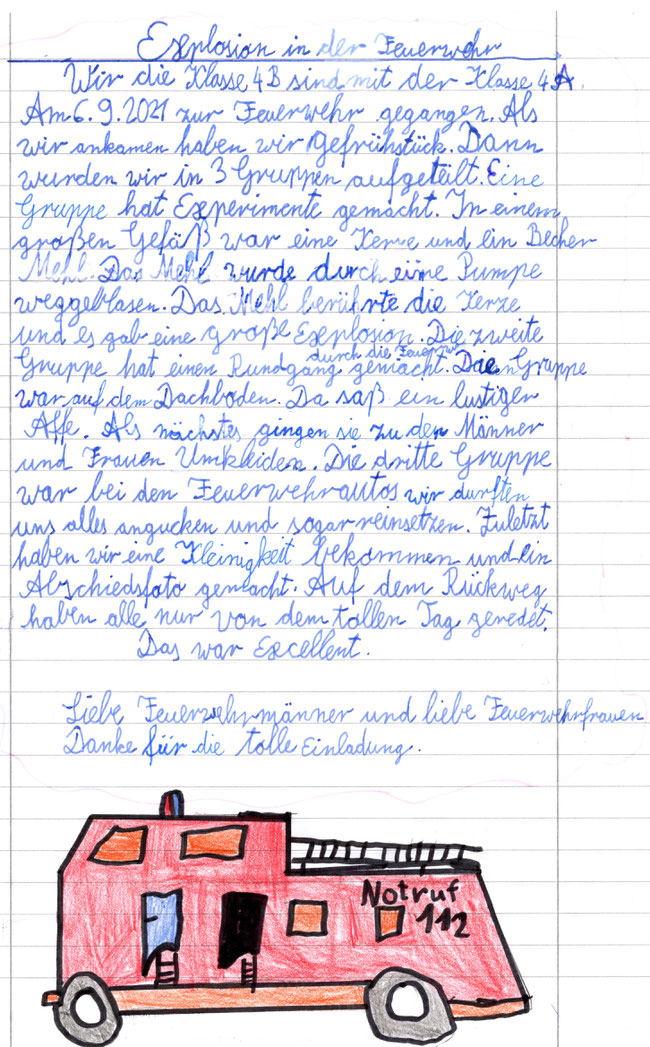 Explosion in der Feuerwehr
Wir die Klasse 4B sind mit der Klasse 4A
Am 6.9.2021 zur Feuerwehr gegangen. Als
wir ankamen haben wir gefrühstück. Dann
wurden wir in 3 Gruppen aufgeteilt. Eine
Gruppe hat Experimente gemacht. In einem
großen Gefäß war eine Kerze und ein Becher
Mehl. Das Mehl wurde durch eine Pumpe
weggeblasen. Das Mehl berührte die Kerze
und es gab eine große Explosion. Die zweite
durch die
Gruppe hat einen Rundgang gemacht. Gruppe
war auf dem Dachboden. Da saß ein lustiger
Affe. Als nächstes gingen sie zu den Männer
und Frauen Umkleiden. Die dritte Gruppe
war bei den Feuerwehrautos wir durften
uns alles angucken und sogar reinsetzen. Zuletzt
haben wir eine Kleinigkeit bekommen und ein
Abschiedsfoto gemacht. Auf dem Rückweg
haben alle nur von dem tollen Tag geredet.
Das war Excellent.
Liebe Feuerwehrmänner und liebe Feuerwehrfrauen
Danke für die tolle Einladung.
Notruf
112